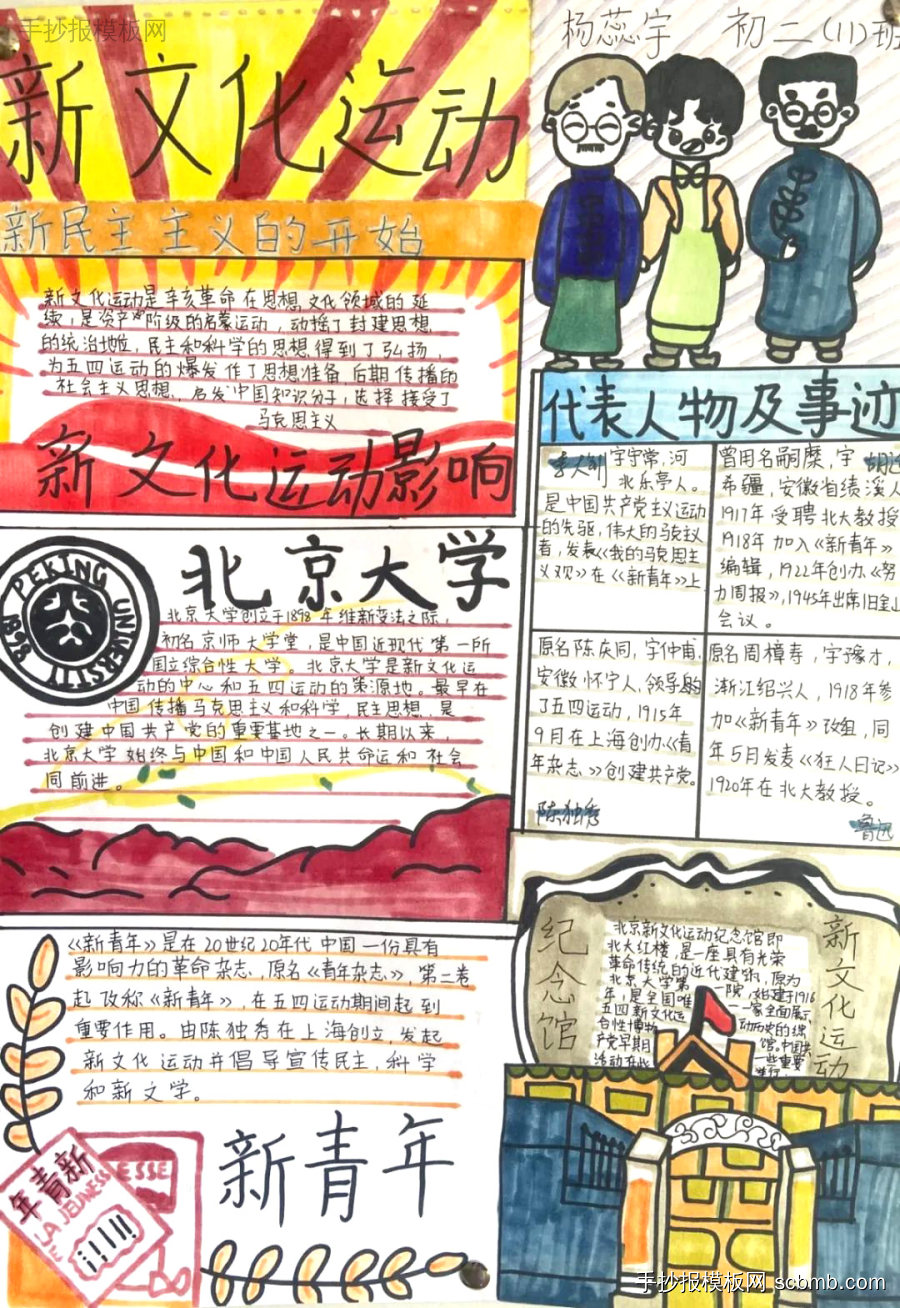 手抄报模板网
新文化运动
杨蕊宇 初二(11)班
新民主主义的开始
新文化运动是辛亥革命在思想文化领域的延
续,是资产阶级的启蒙运动,动摇了封建思想
的统治地位,民主和科学的思想得到了弘扬,
为五四运动的爆发作了思想准备,后期传播的
社会主义思想,启发中国知识分子,选择接受了
马克思主义
新文化运动影响
代表人物及事迹
李大钊 字守常,河
北乐亭人。
是中国共产党主义运动
的先驱,伟大的马克主义
者,发表《我的马克思主
义观》在《新青年》上
曾用名嗣糜,字 胡适
希疆,安徽省绩溪人
1917年受聘北大教授
1918年加入《新青年》
编辑,1922年创办《努
力周报》,1945年出席旧金山
会议。
原名陈庆同,字仲甫,
安徽怀宁人,领导
了五四运动,1915年
9月在上海创办《青
年杂志》创建共产党。
陈独秀
原名周樟寿,字豫才,
浙江绍兴人,1918年参
加《新青年》改组,同
年5月发表《狂人日记》
1920年在北大教授。
鲁迅
PEKING UNIVERSITY 1898
北京大学
北京大学创立于1898年维新变法之际,
初名京师大学堂,是中国近现代第一所
国立综合性大学。北京大学是新文化运
动的中心和五四运动的策源地。最早在
中国传播马克思主义和科学,民主思想,是
创建中国共产党的重要基地之一。长期以来,
北京大学始终与中国和中国人民共命运和社会
同前进。
《新青年》是在20世纪20年代中国一份具有
影响力的革命杂志,原名《青年杂志》,第二卷
起改称《新青年》,在五四运动期间起到
重要作用。由陈独秀在上海创立,发起
新文化运动并倡导宣传民主,科学
和新文学。
新青年
新青年
LA JEUNESSE
ESSE
新文化运动
纪念馆
北京新文化运动纪念馆即
北大红楼,是一座具有光荣
革命传统的近代建筑,原为
北京大学第一院,始建于1916
年,是全国唯一一家全面展示
五四新文化运动历史的综
合性博物馆。中国共
产党早期一些重要
活动在此进行
手抄报模板网 scbmb.com